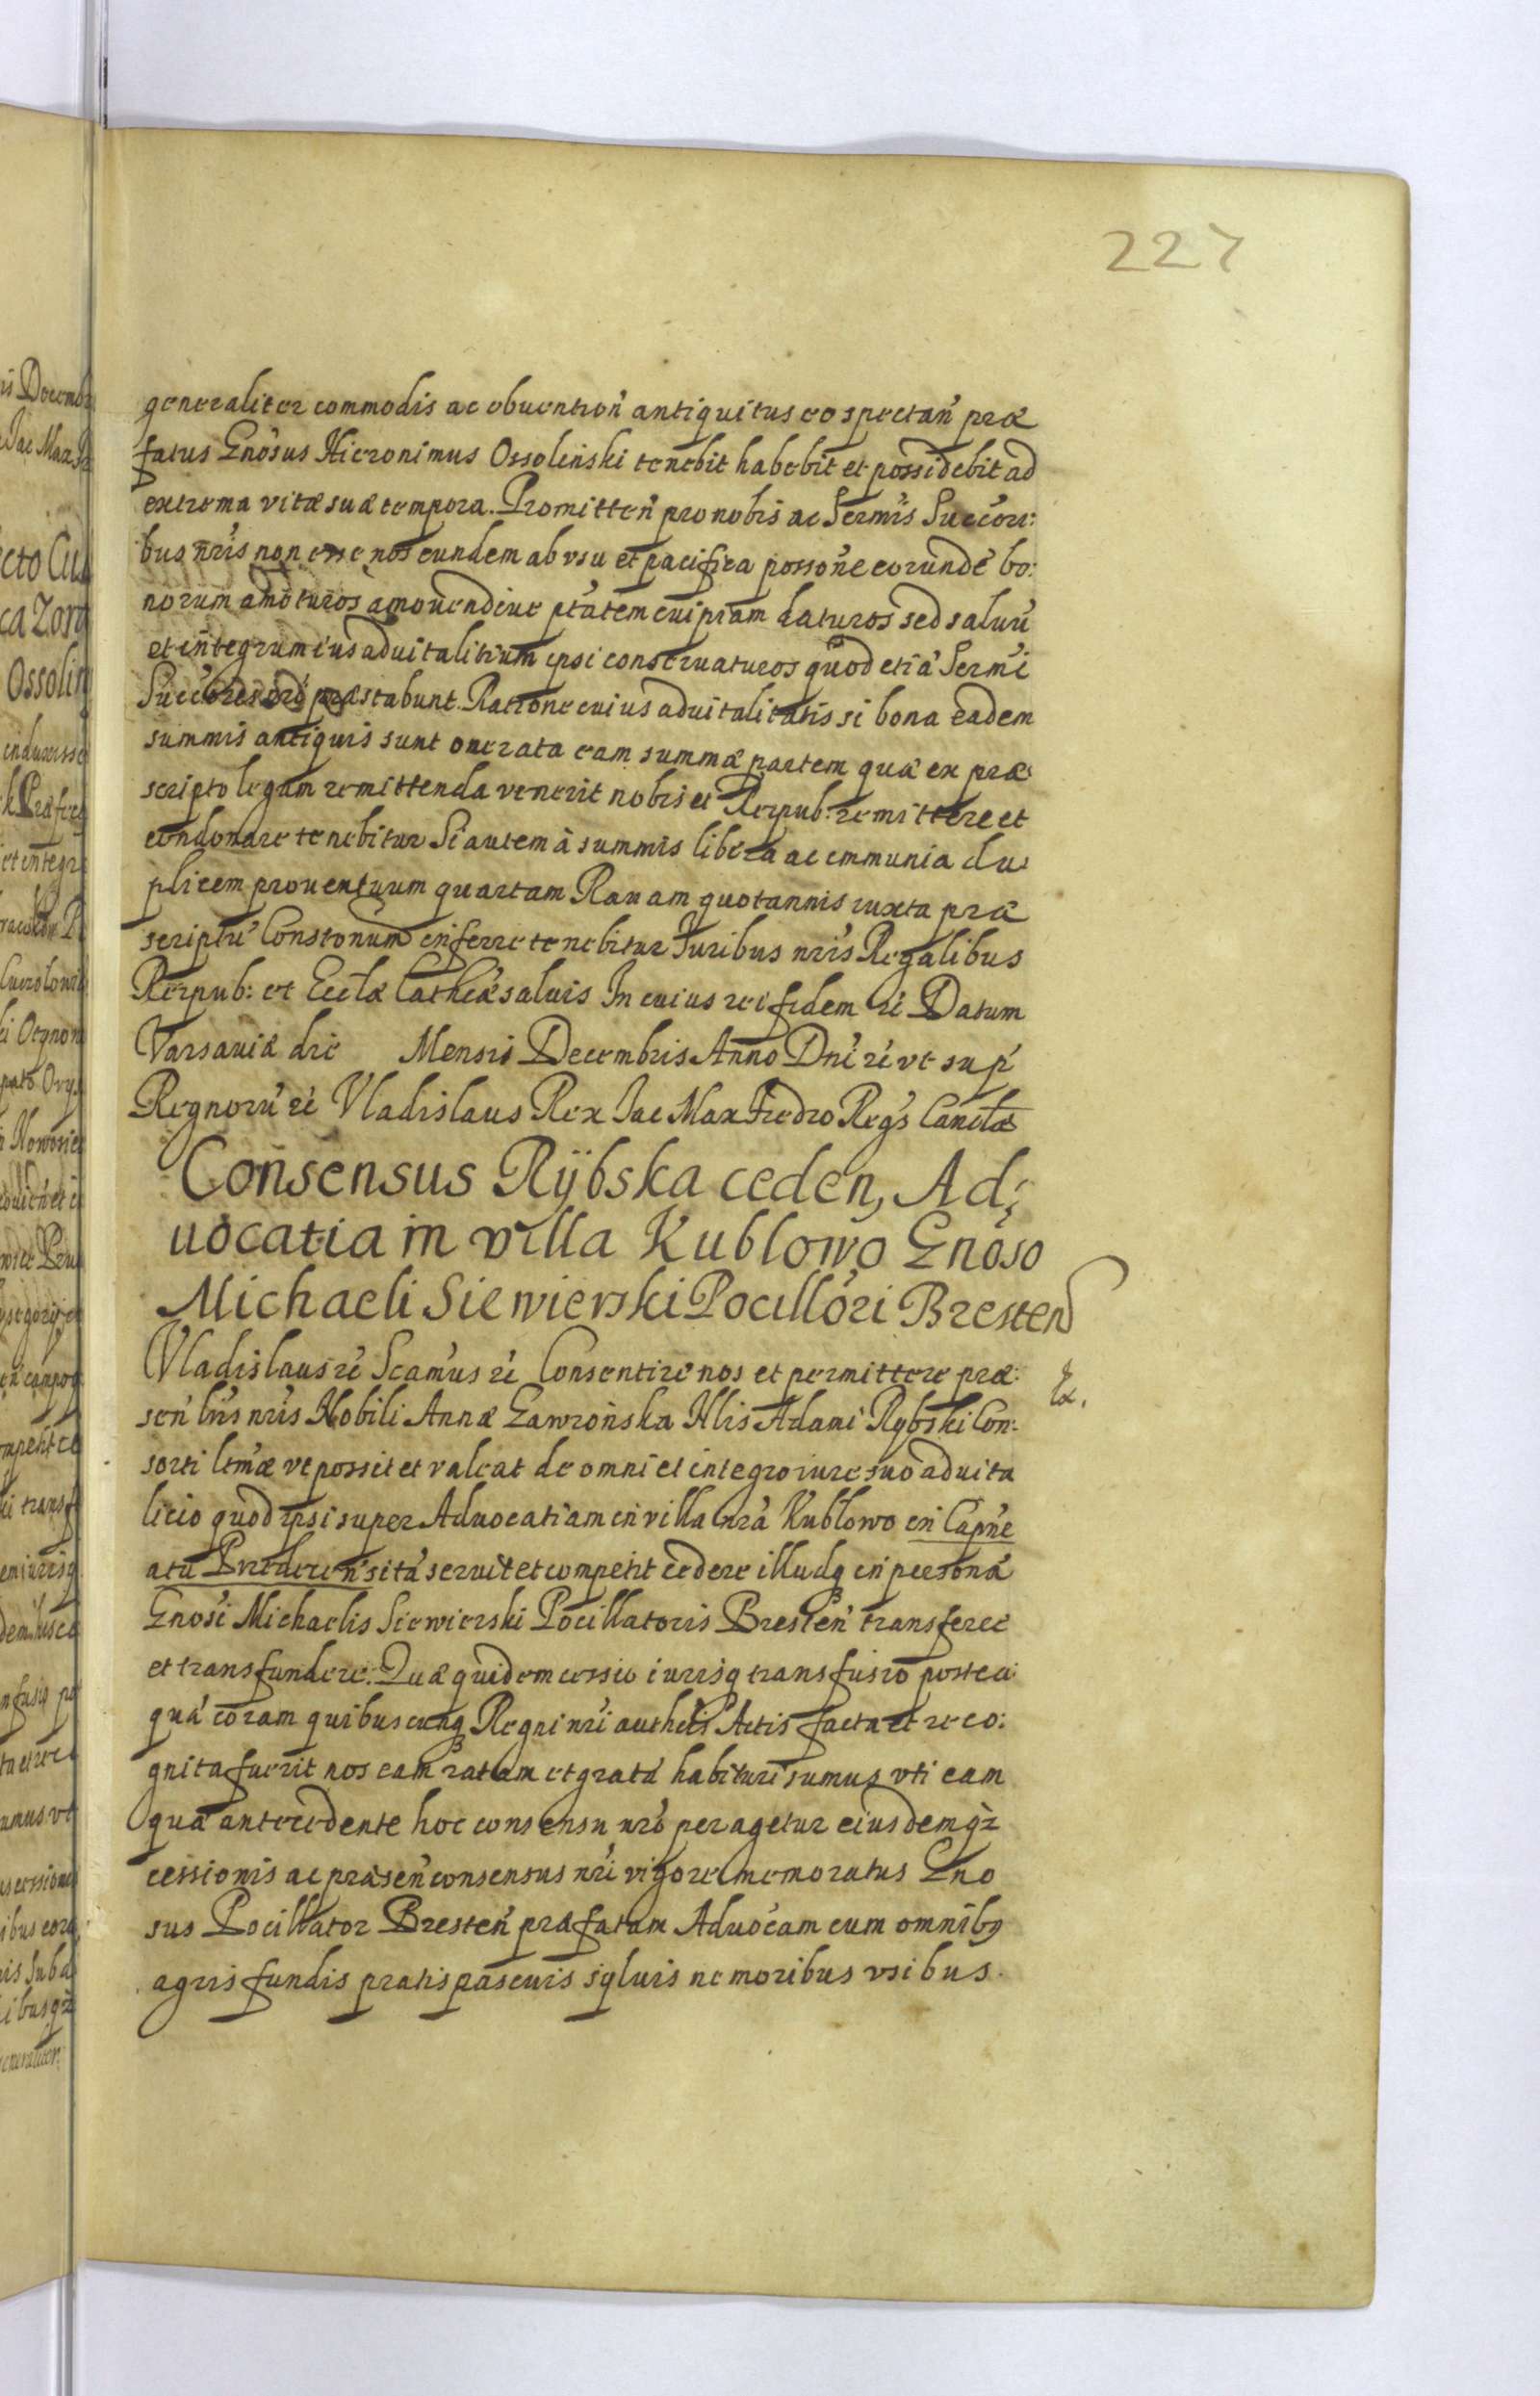 227
generaliter commodis ac obuention antiquitus eo spectan præ
fatus Gnosus Hieronimus Ossolinski tenebit habebit et possidebit ad
extrema vitæ suæ tempora. Promitten pro nobis ac Sermis Succeori:
bus nris non esse nos eundem ab vsu et pacifica possone eorunde bo:
norum amoturos amouendiue ptatem cuipiam daturos sed saluu
et integrum ius aduitalitium ipsi conseruaturos quod etia Sermi
Succores nri præstabunt. Ratione cuius aduitalitatis si bona eadem
summis antiquis sunt onerata eam summæ partem quæ ex præ:
scripto legum remittenda venerit nobis et Reipub: remittere et
condonare tenebitur Si autem à summis libera ac immunia du:
plicem prouentuum quartam Rauam quotannis iuxta præ
scriptu Constonum inferre tenebitur Iuribus nris Regalibus
Reipub: et Ecclæ Cathcæ saluis In cuius rei fidem rê Datum
Varsauiæ die Mensis Decembris Anno Dni rê vt sup
Regnoru rê Vladislaus Rex Iac Max Fredro Regs Cancla
Consensus Rÿbska ceden, Ad:
uocatia in villa Kublowo Gnoso
Michaeli Siewierski Pocillori Bresten
Vladislaus rê Scamus rê Consentire nos et permittere præ:
Ex.
sen lris nris Nobili Annæ Gawronska Nlis Adami Rybski Con:
sorti ltmæ vt possit et valeat de omni et integro iure suo aduita
licio quod ipsi super Aduocatiam in villa nra Kublowo in Capne
atu Bredecen sita seruit et competit cedere illudq in persona
Gnosi Michaelis Siewierski Pocillatoris Bresten transferre
et transfundere. Quæ quidem cessio iurisq transfusio postea
qua coram quibuscunq Regni nri authcis Actis facta et reco:
gnita fuerit nos eam ratam et grata habituri sumus vti eam
qua antecedente hoc consensu nro peragetur eiusdemq
cessionis ac præsen consensus nri vigore memoratus Gno
sus Pocillator Bresten præfatam Aduocam cum omnibq
agris fundis pratis pascuis syluis nemoribus vsibus.